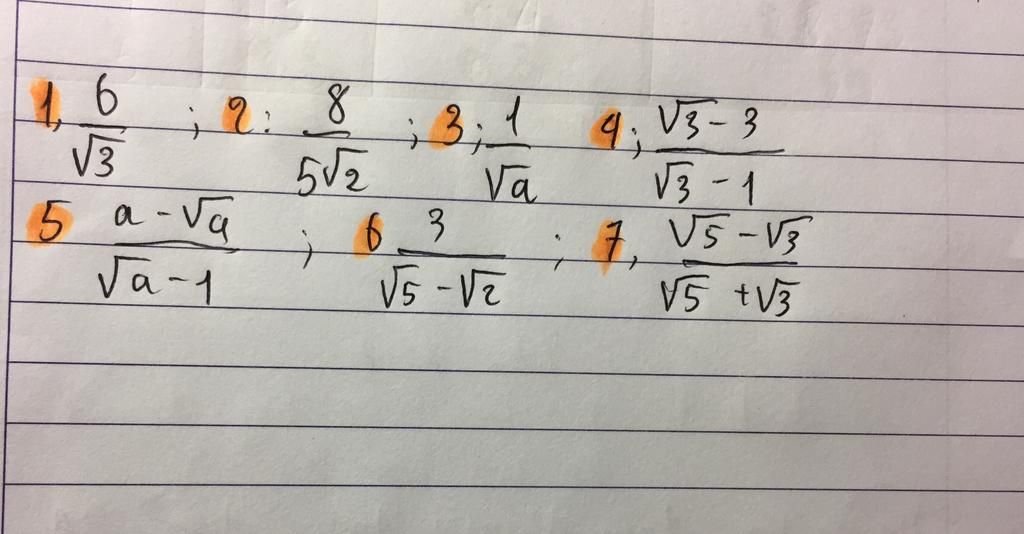 1, 6/√3 ; 2: 8/5√2 ; 3; 1/√a 4; √3 - 3/√3 - 1
5 a - √a/√a - 1 ; 6 3/√5 - √2 ; 7, √5 - √3/√5 + √3